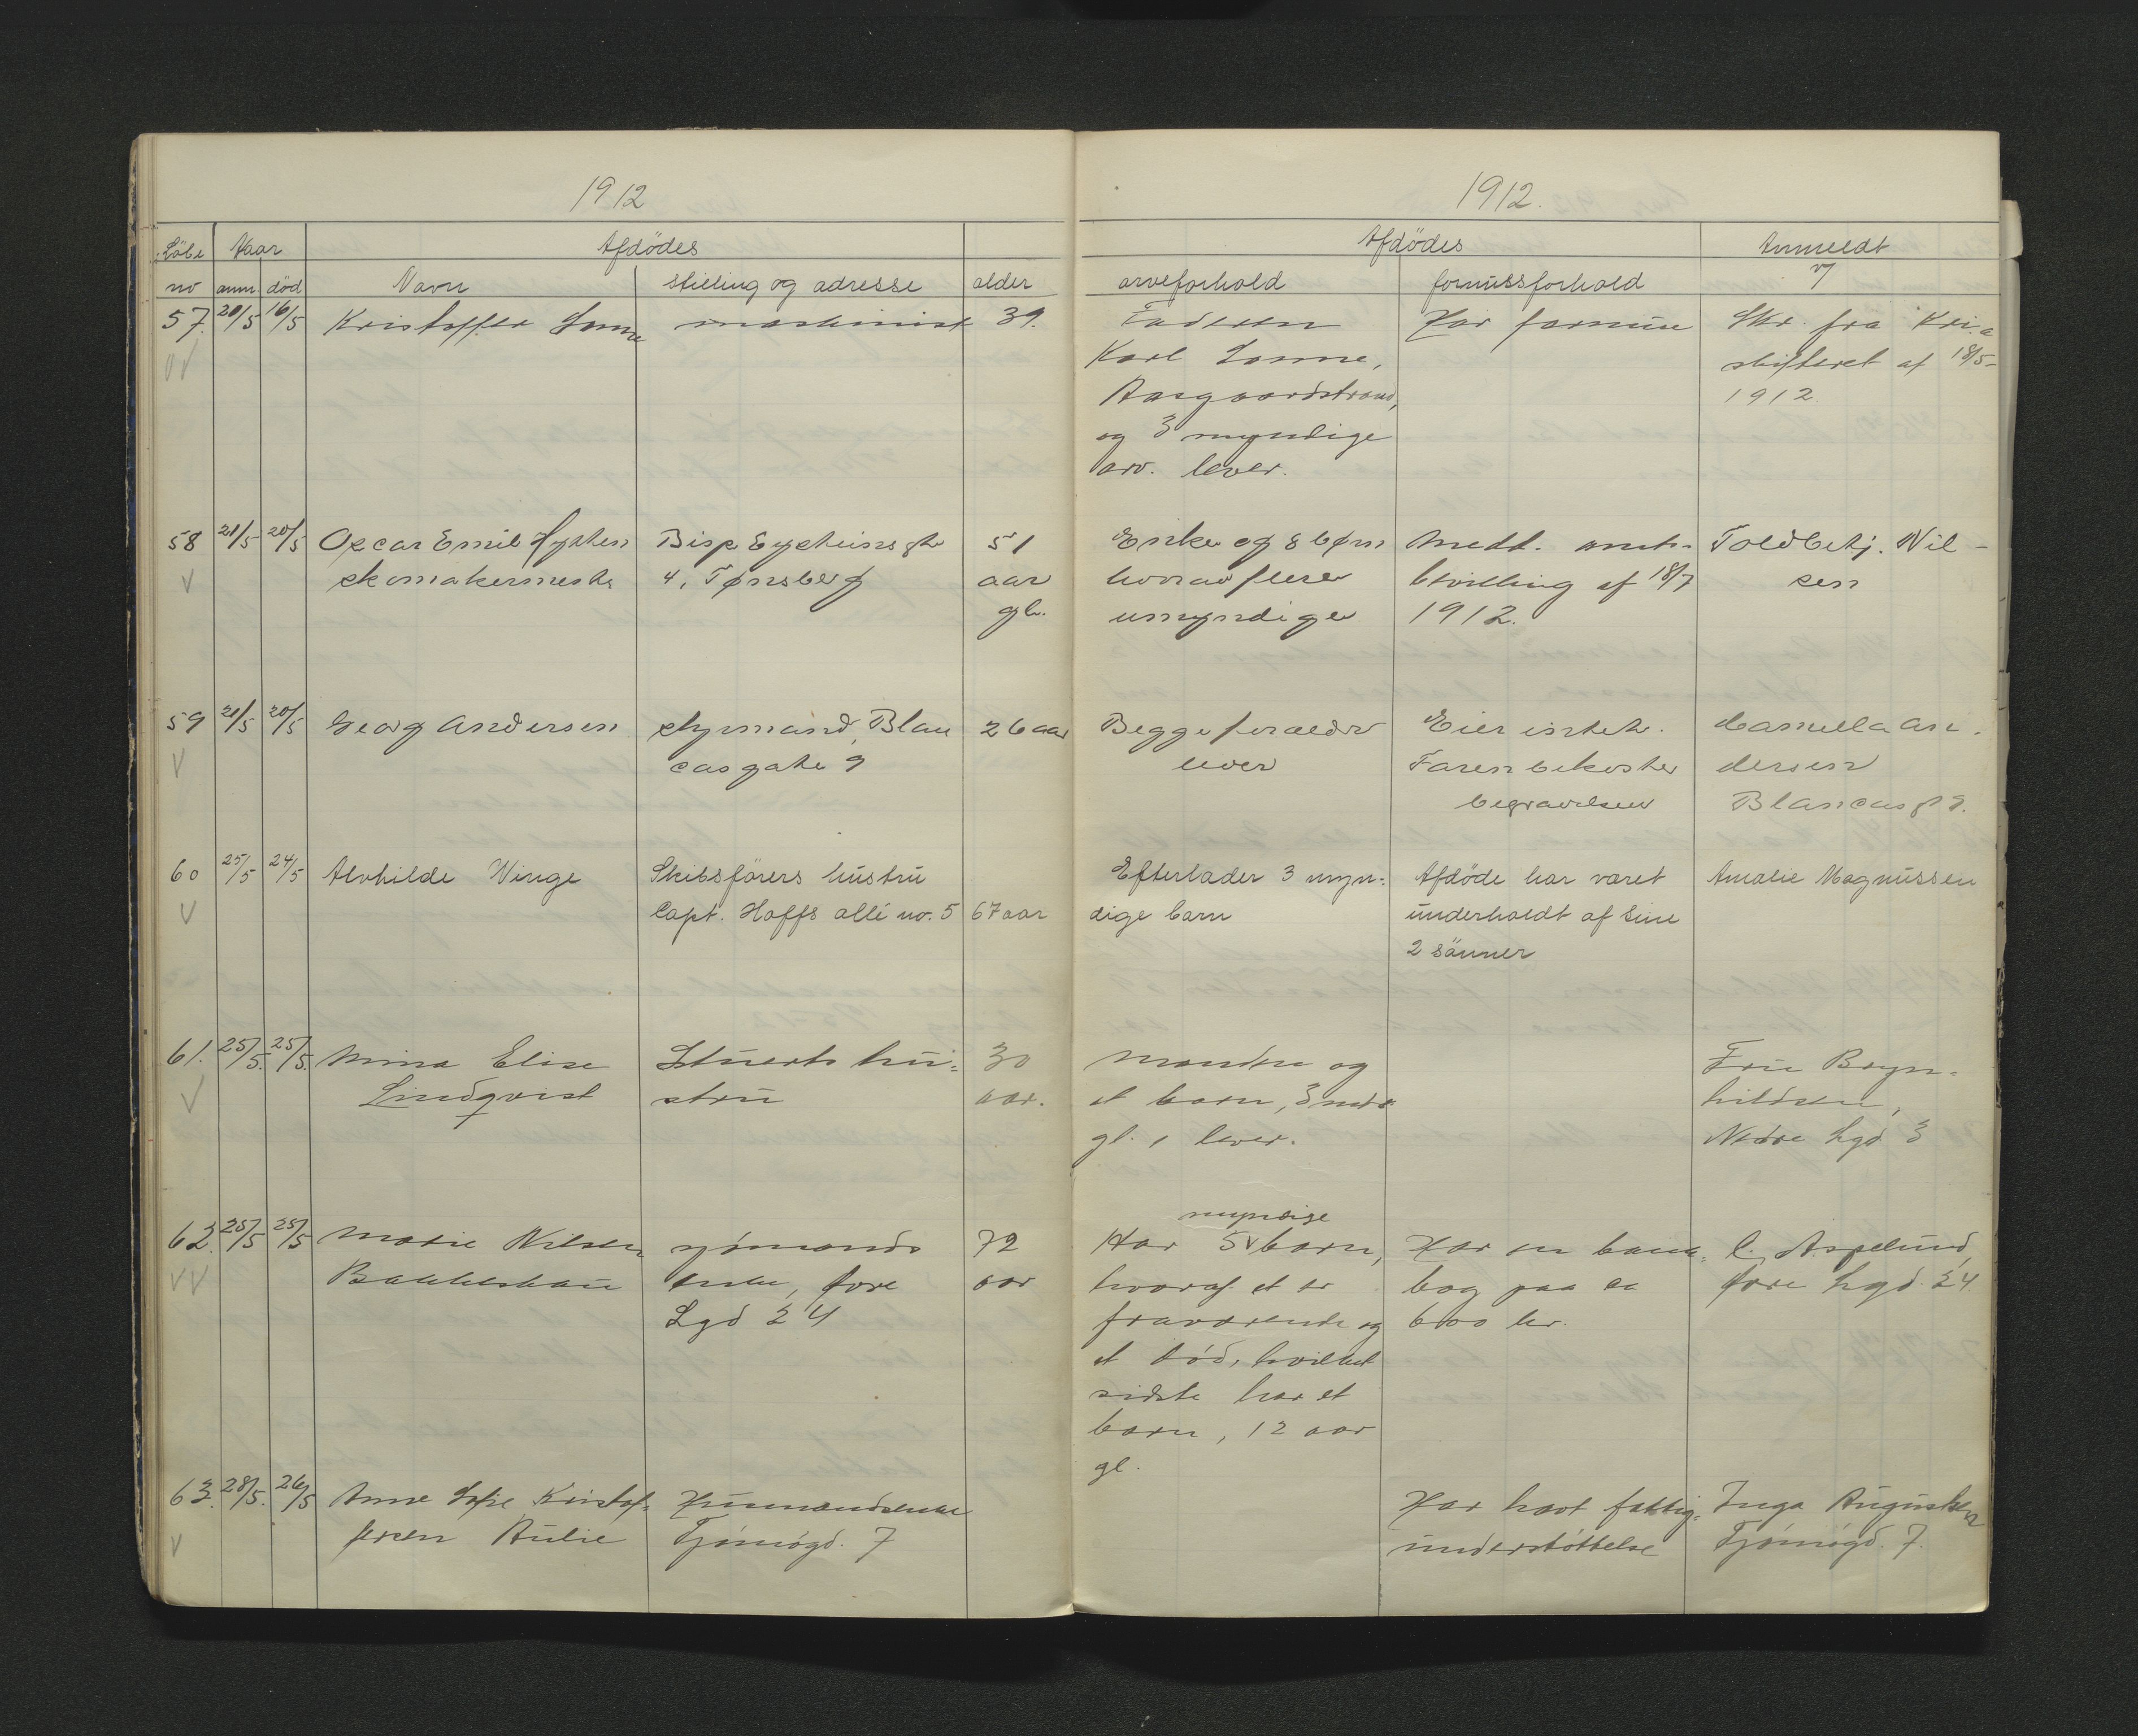 1912
Løbe Naar Afdödes
no anm. död Navn stilling og adresse alder
57. 20/5 16/5 Kristoffer Sonne maskinist 39.
58 21/5 20/5 Oscar Emil Bisp Eysteinsgt 51
skomakermester 4, Tønsberg aar
gl.
59 21/5 20/5 Georg Andersen styrmand, Blan 26 aar
casgate 9
60 25/5 24/5 Alvhilde Winge Skibsförers hustru
Capt. Hoffs allé no. 5 67 aar
61. 25/5. 25/5. Mina Elise Stuerts hu= 30
Lindqvist stru aar.
62. 25/5 25/5 Marie Nilsen sjömands 72
Bakkeshau enke, fore aar
Lgd 24
63. 28/5. 26/5 Anne Sofie Kristof=
fersen Aulie Tjömögd. 7
1912.
Afdödes Anmeldt
arveforhold formusforhold v/
Faderen Har formue Skr. fra Kri.a
Karl Sonne, skifteret af 18/5-
Aasgaardstrand, 1912
og 3 myndige
arv. lever.
Enke og 8 børn Medd. amts- Toldbetj. Nil-
hvorav flere bevilling af 18/7 sen
umyndige 1912.
Begge forældre Eier intet. Camilla An.
lever Faren bekoster dersen
begravelsen Blancasgt 9.
Efterlader 3 myn= Afdöde har været Amalie Magnussen
dige barn underholdt af sine
2 sönner
Manden og Fru Bryn=
et barn, 3 mdr hildsen,
gl., lever. Nedre Lgd 3
myndige
Har 5 v barn, Har en bank= C. Aspelund,
hvoraf et er bog paa ca fore Lgd. 24
fraværende og 600 kr.
et död, hvilket
sidste har et
barn, 12 aar
gl.
Har havt fattig= Inga Augustsen
understöttelse Tjömögd. 7.